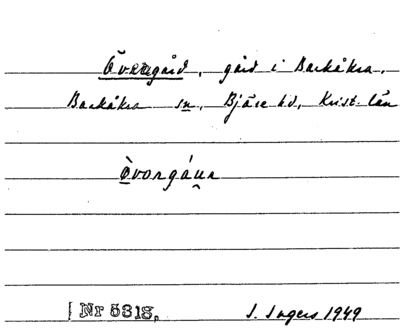 Övragård, gård i Backåkra,
Backåkra sn, Bjäre hd, Krist. län
òvorgáun
Nr 5818, I. Ingers 1949